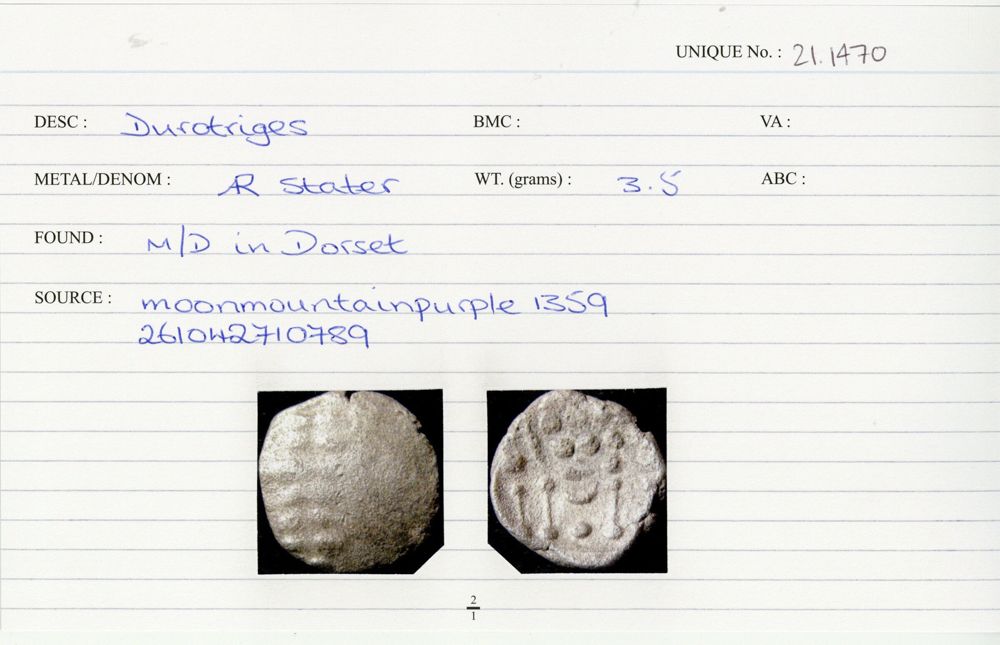 UNIQUE No. : 21.1470
DESC : Durotriges BMC : VA :
METAL/DENOM : AR Stater WT. (grams) : 3.5 ABC :
FOUND : M/D in Dorset
SOURCE : moonmountainpurple 1359
261042710789
2
1